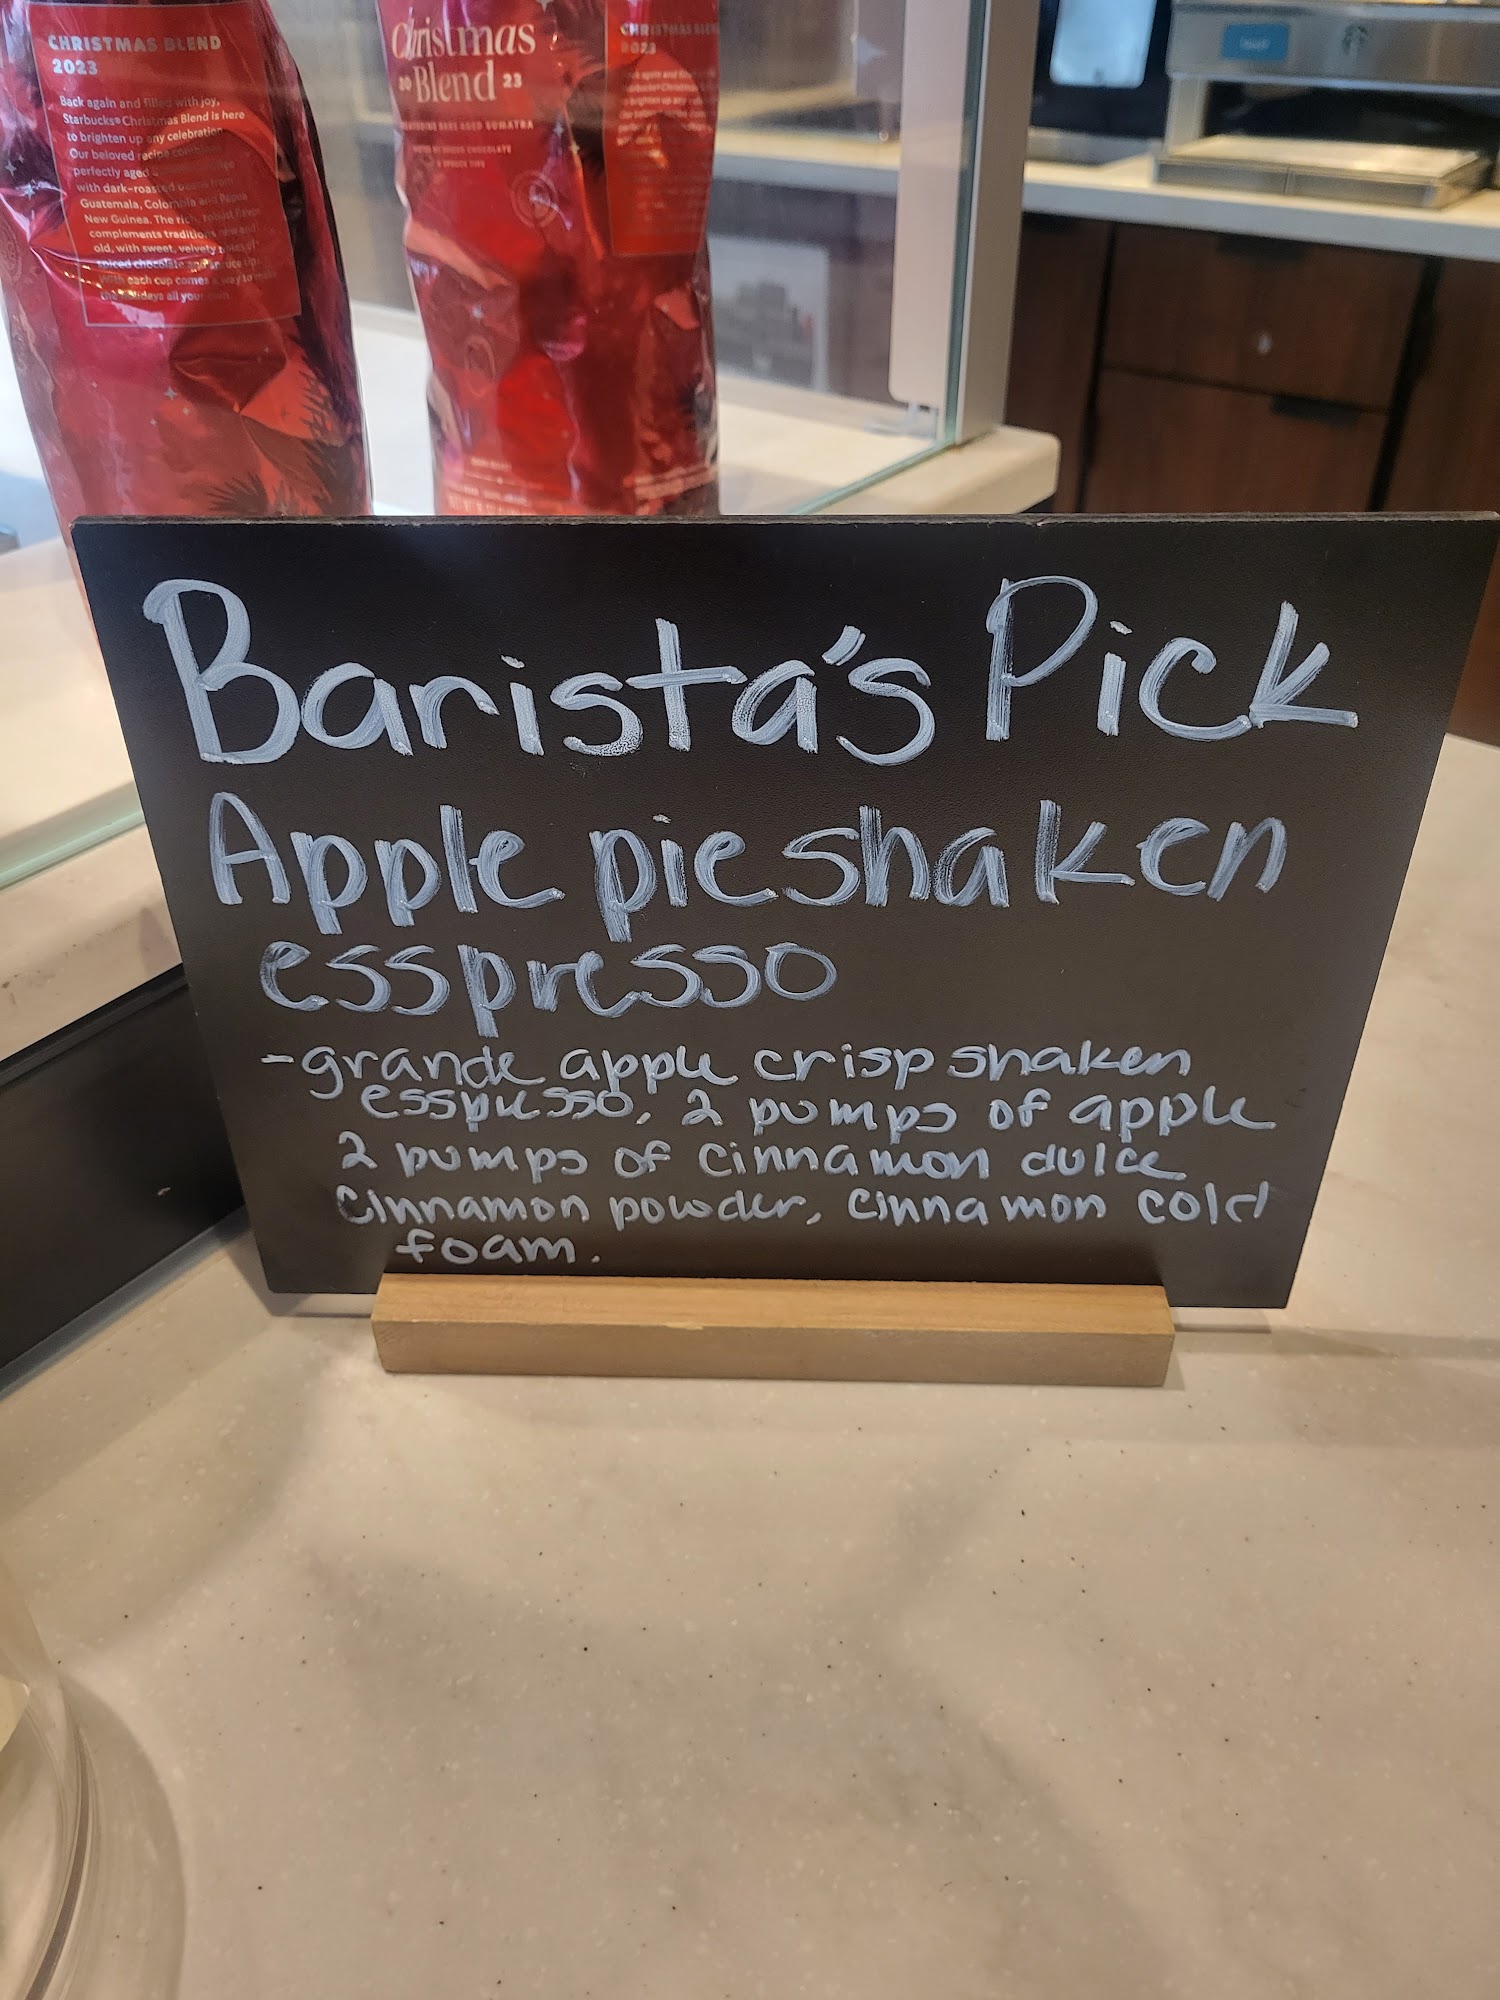 CHRISTMAS BLEND
2023
Back again and filled with joy,
Starbucks® Christmas Blend is here
to brighten up any celebration
Our beloved recipe combines
perfectly aged
with dark-roasted beans from
Guatemala, Colombia and Papua
New Guinea. The rich, robust flavor
complements traditions new and
old, with sweet, velvety notes of
spiced chocolate and spruce tips.
With each cup comes a way to make
the holidays all your own
Christmas
20 Blend 23
CHRISTMAS BLEN
2023
Barista's Pick
Apple pie shaken
esspresso
-grande apple crisp shaken
esspresso, 2 pumps of apple
2 pumps of cinnamon dulce
cinnamon powder, cinnamon cold
foam.